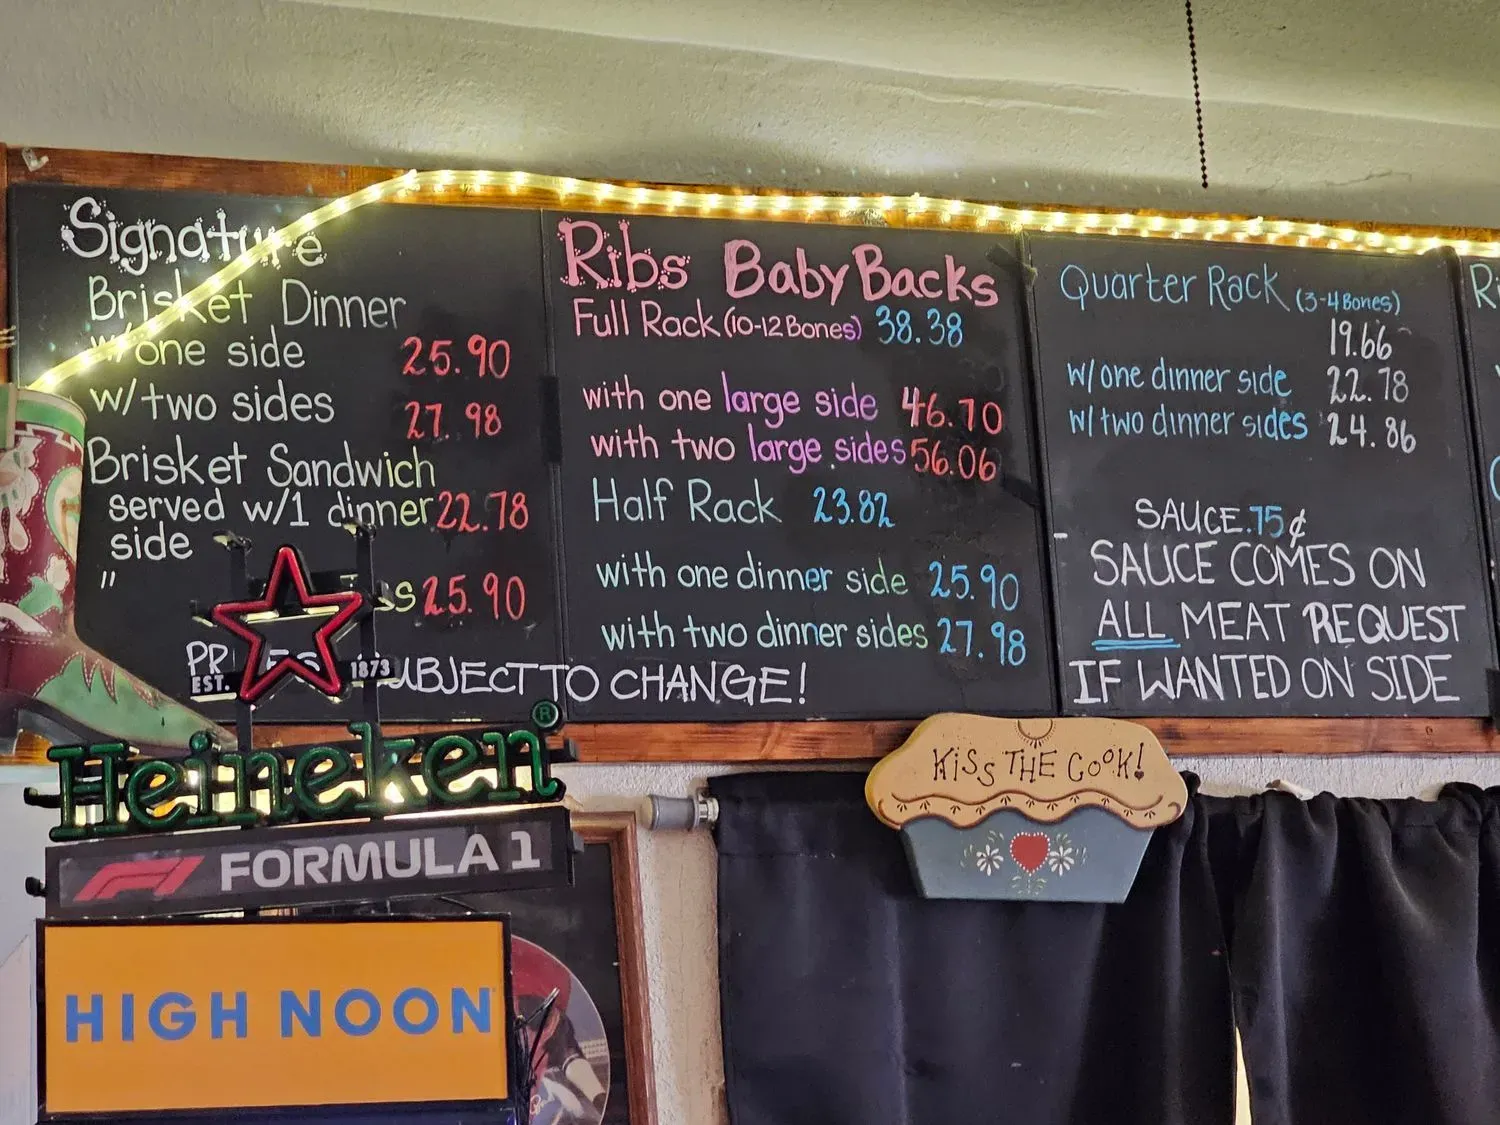 Signature
Brisket Dinner
w/one side 25.90
w/two sides 27.98
Brisket Sandwich
served w/1 dinner 22.78
side
" 25.90
SUBJECT TO CHANGE!
Ribs Baby Backs
Full Rack (10-12 Bones) 38.38
with one large side 46.70
with two large sides 56.06
Half Rack 23.82
with one dinner side 25.90
with two dinner sides 27.98
Quarter Rack (3-4 Bones)
19.66
w/one dinner side 22.78
w/two dinner sides 24.86
SAUCE .75¢
SAUCE COMES ON
ALL MEAT REQUEST
IF WANTED ON SIDE
EST. 1873
Heineken®
FORMULA 1
HIGH NOON
KISS THE COOK!